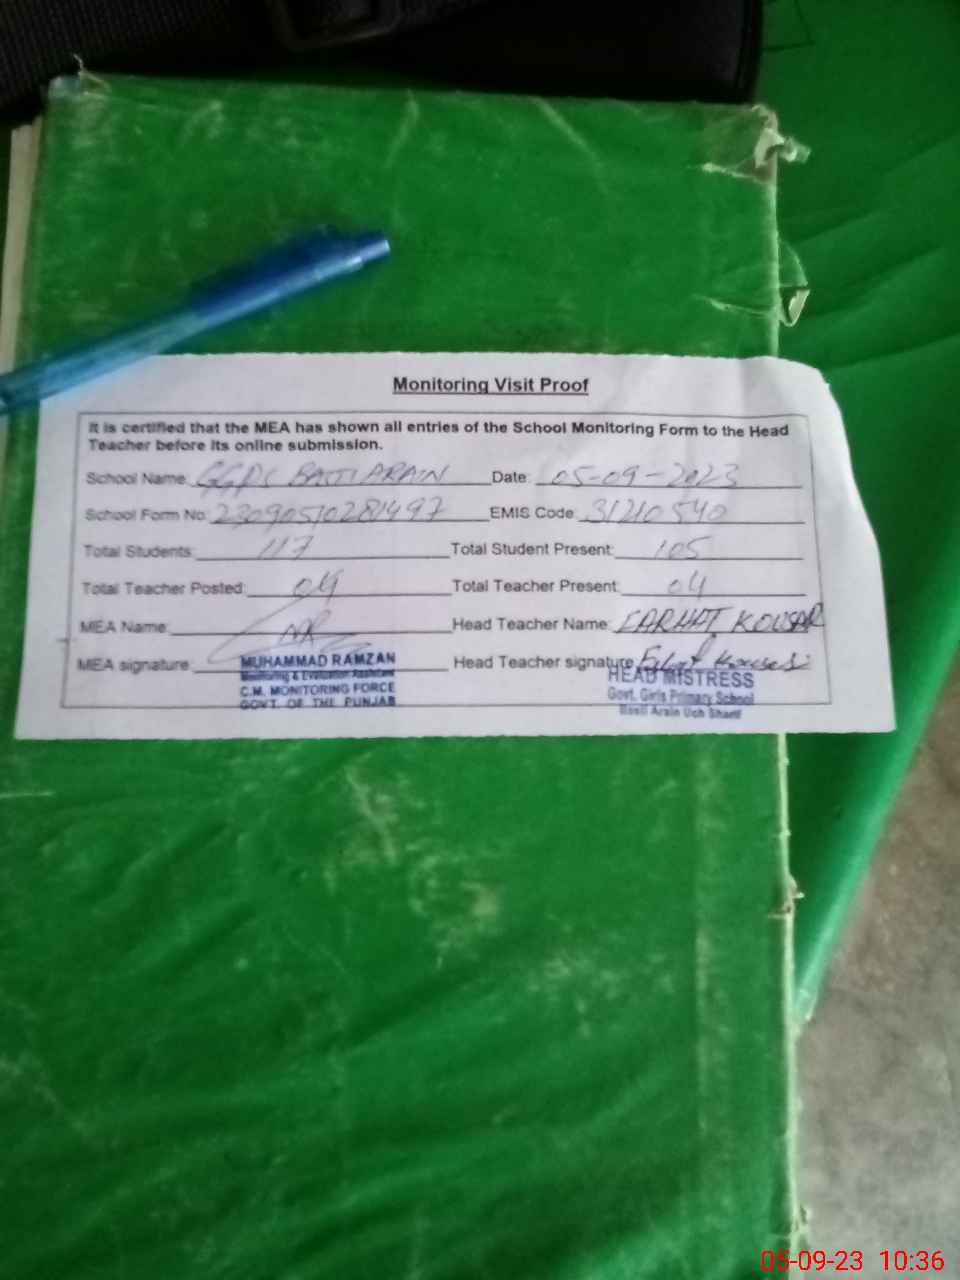 Monitoring Visit Proof
It is certified that the MEA has shown all entries of the School Monitoring Form to the Head
Teacher before its online submission.
School Name: GGPS BASTI ARAIN Date: 05-09-2023
School Form No: 23090510281497 EMIS Code: 31210540
Total Students: 117 Total Student Present: 105
Total Teacher Posted: 04 Total Teacher Present: 04
MEA Name: Head Teacher Name: FARHAT KOUSAR
MEA signature: Head Teacher signature
MUHAMMAD RAMZAN
Monitoring & Evaluation Assistant
C.M. MONITORING FORCE
GOVT. OF THE PUNJAB
HEAD MISTRESS
Govt. Girls Primary School
Basti Arain Uch Sharif
05-09-23 10:36